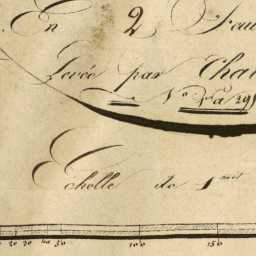 En 2 Feu
Levée par Cha
N° Va 295
Echelle de 1
10 20 30 40 50 100 150